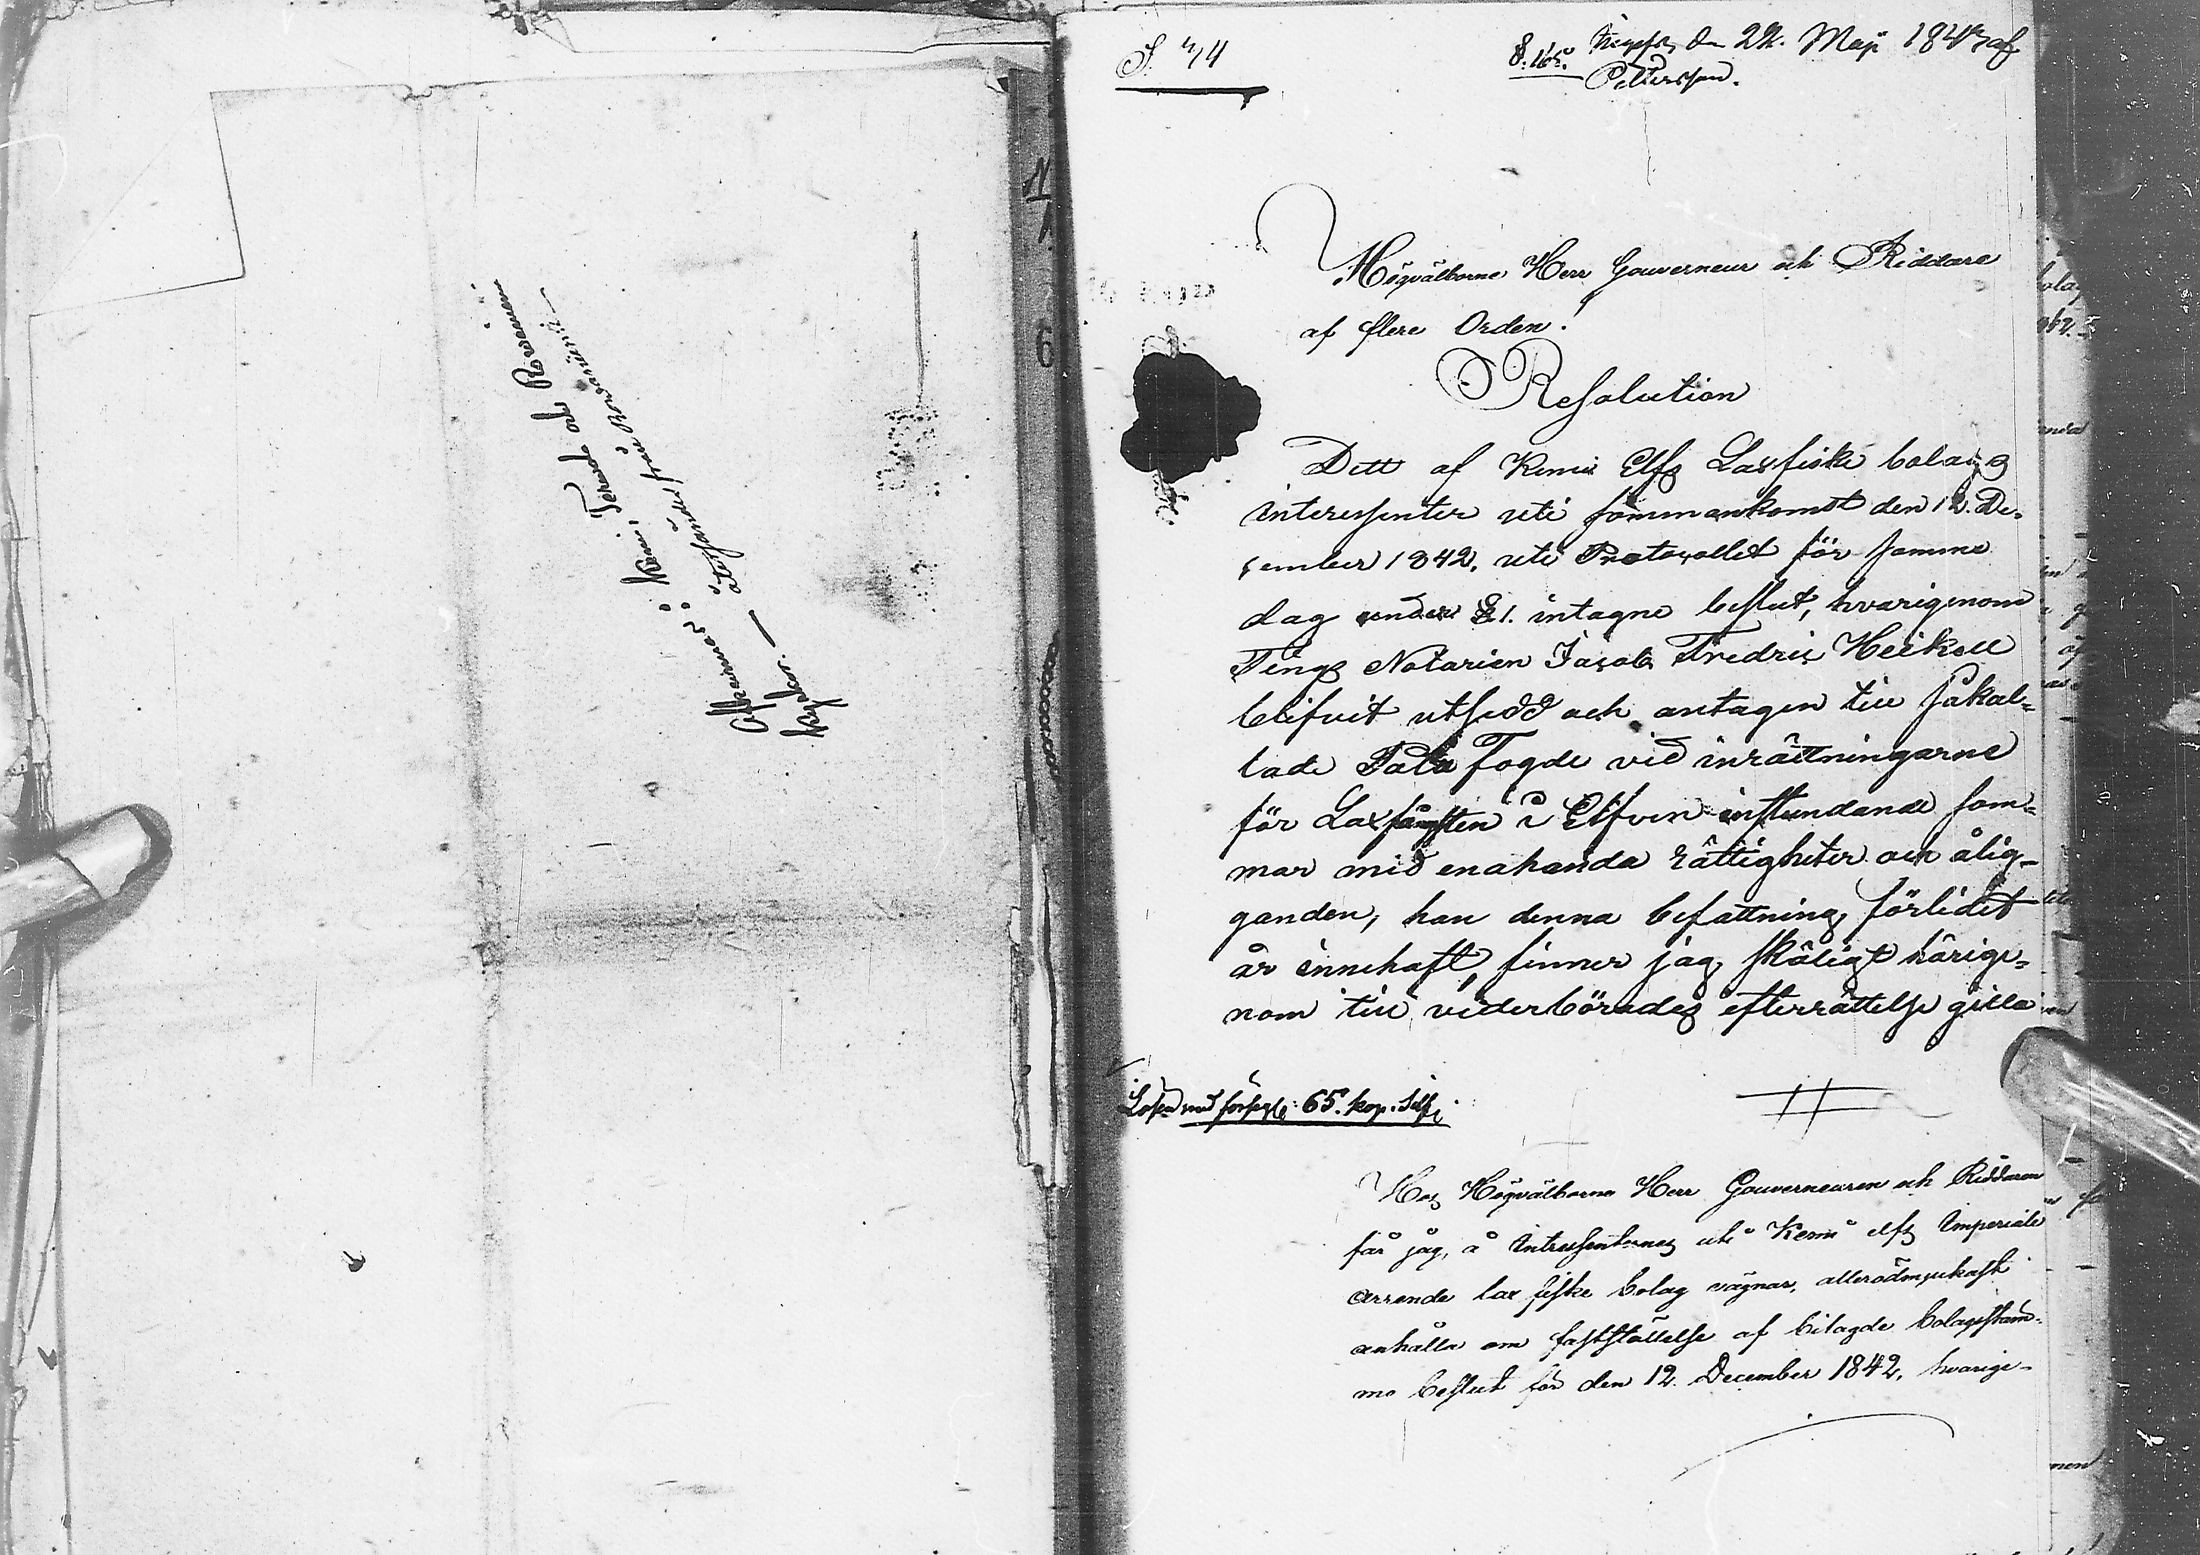 Kemi, Tervola och Rovaniemi
från Rovaniemi
S. 4/4
§. 165. den 22. Maji 1843 af
Petersson.
Högvälborne Herr Gouverneur och Riddare
af flere Orden!
Resolution
Dett af Kemi Elfs Laxfiske bolags
interessenter uti sammankomst den 12. De-
cember 1842. uti Protocollet för samma
dag under § 1. intagne beslut, hvarigenom
Tings Notarien Jacob Fredric Heikell
blifvit utsedd och antagen till såkal=
lade Pata Fogde vid inrättningarne
för Laxfångsten i Elfven instundande som=
mar med enahanda rättigheter och ålig-
ganden, han denna befattning förledet
år innehaft, finner jag skäligt härige=
nom till vederbörandes efterrättelse gilla
Lösen med försegl: 65. kop. Silfv.
Hos Högvälborne Herr Gouverneuren och Riddaren
får jag, å Intressenternes uti Kemi elfs Imperiale
arrende lax fiske bolag vägnar, allerödmjukast
anhålla om fastställelse af bilagde bolagsstäm-
mo beslut för den 12. December 1842, hvarige-